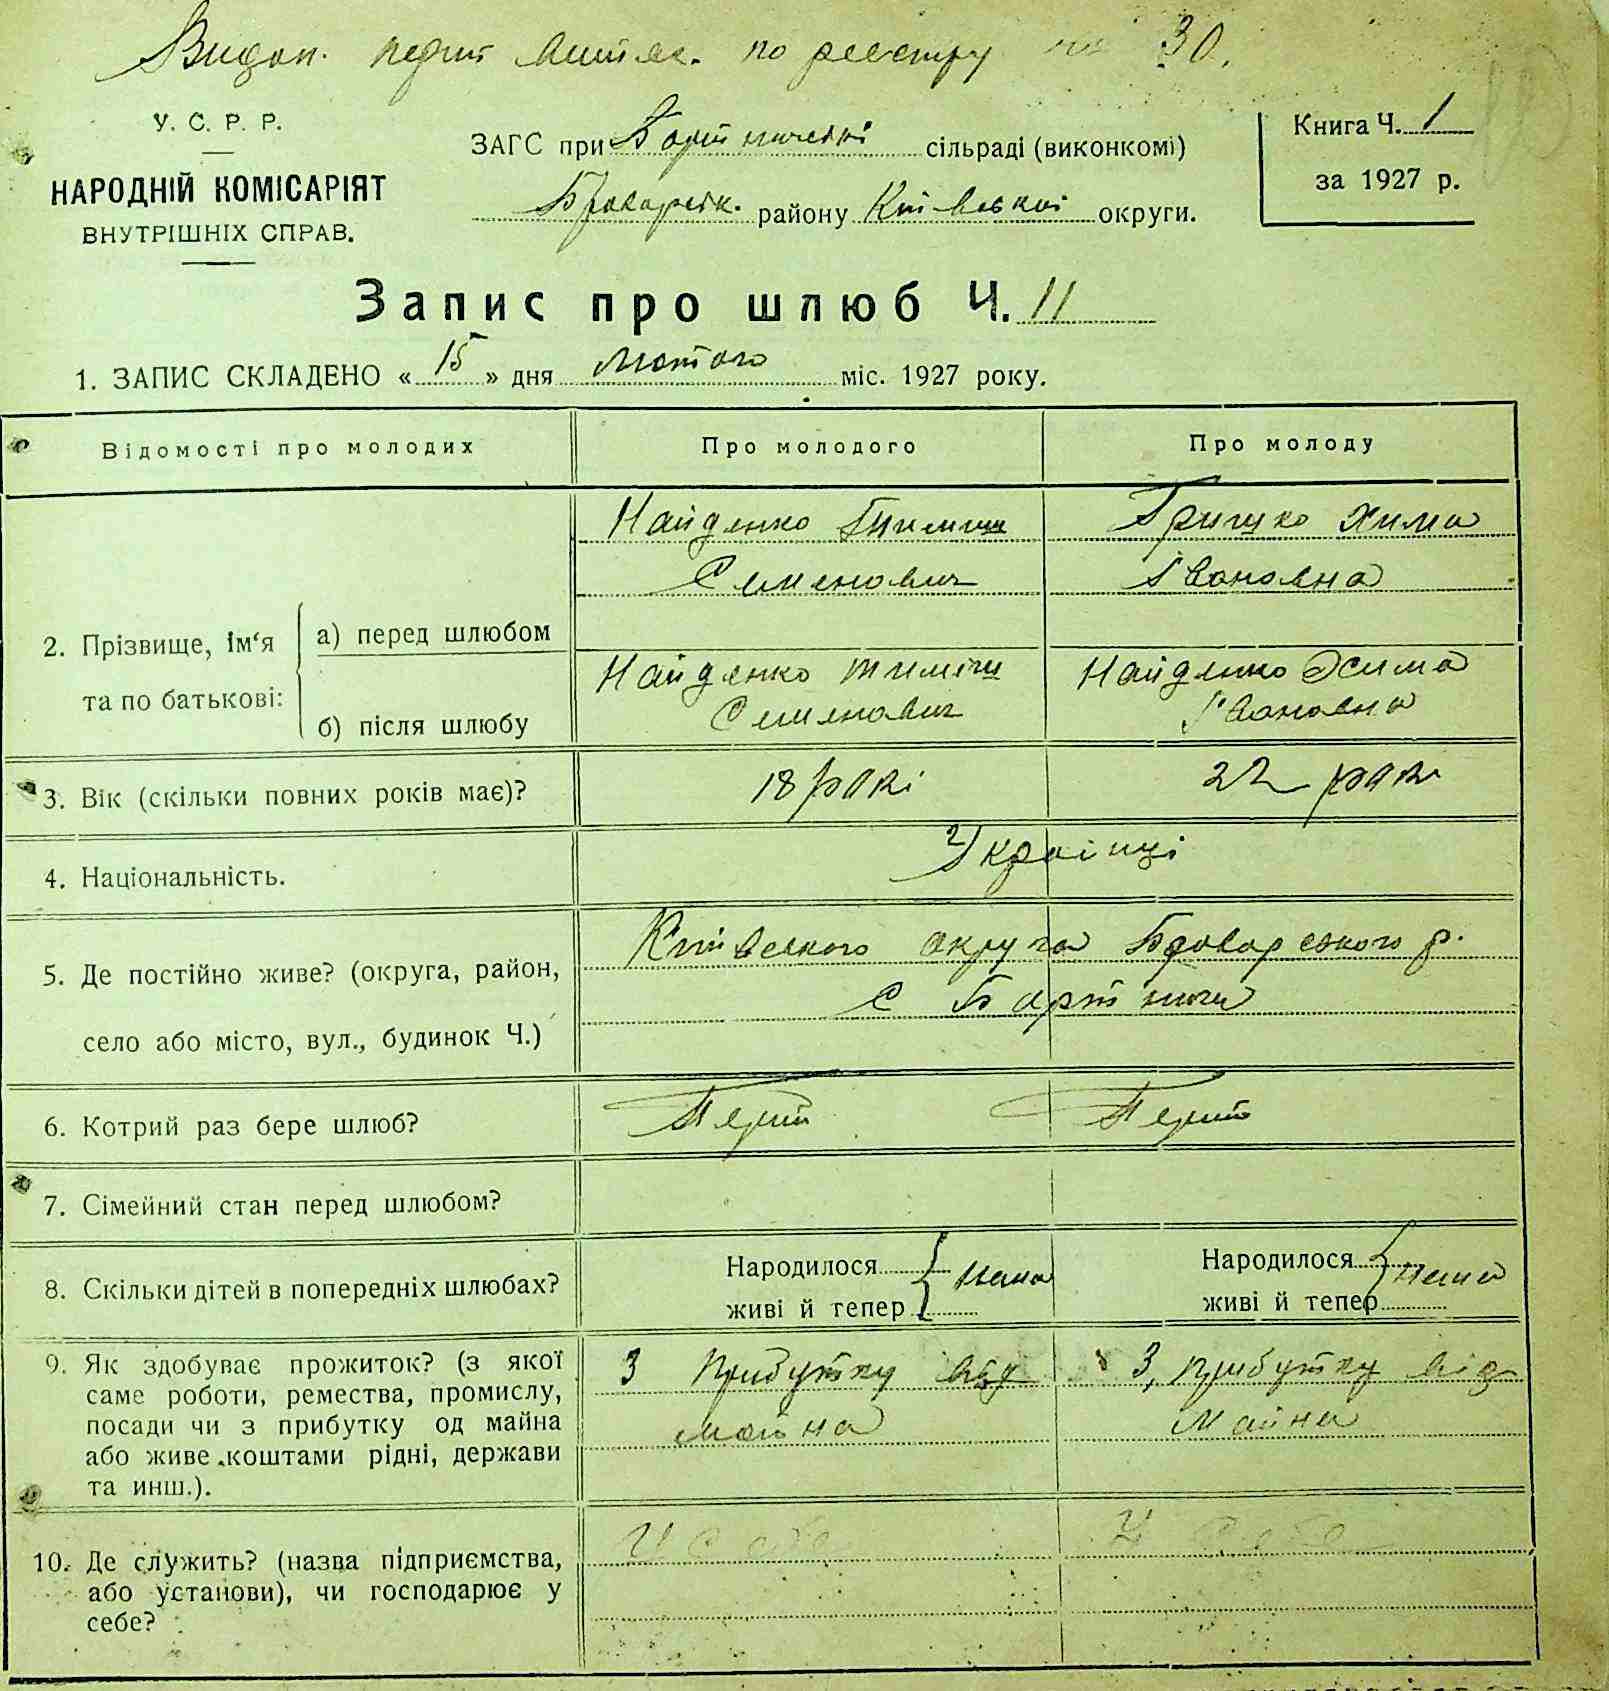 Видан. по реєстру № 30.
У. С. Р. Р.
НАРОДНІЙ КОМІСАРІЯТ
ВНУТРІШНІХ СПРАВ.
ЗАГС при Бортничські сільраді (виконкомі)
Броварськ. району Київської округи.
Книга Ч. 1
за 1927 р.
Запис про шлюб Ч. 11
1. ЗАПИС СКЛАДЕНО « 15 » дня Лютого міс. 1927 року.
Відомості про молодих
Про молодого
Про молоду
2. Прізвище, ім'я та по батькові:
а) перед шлюбом
Найденко Тиміш
Семенович
Грицко Хима
Івановна
б) після шлюбу
Найденко Тиміш
Семенович
Найденко Хима
Івановна
3. Вік (скільки повних років має)?
18 рокі
22 рокі
4. Національність.
Українці
5. Де постійно живе? (округа, район,
село або місто, вул., будинок Ч.)
Київського округа Броварського р.
с Бортничи
6. Котрий раз бере шлюб?
Перший
Перший
7. Сімейний стан перед шлюбом?
8. Скільки дітей в попередніх шлюбах?
Народилося
живі й тепер
Нема
Народилося
живі й тепер
Нема
9. Як здобуває прожиток? (з якої
саме роботи, ремества, промислу,
посади чи з прибутку од майна
або живе коштами рідні, держави
та инш.).
З прибутку від
майна
З, прибутку від
Майна
10. Де служить? (назва підприємства,
або установи), чи господарює у
себе?
У себе
У себе